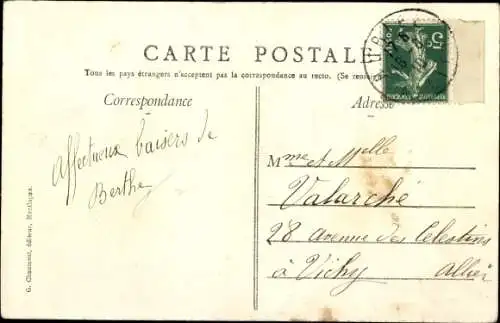 CARTE POSTALE
Tous les pays étrangers n'acceptent pas la correspondance au recto. (Se
Correspondance
Adresse
Affectueux baisers de
Berthe
Mme et Melle
Valarché
28 avenue des Celestins
à Vichy Allier
G. Chaumont, éditeur, Montluçon.
5c